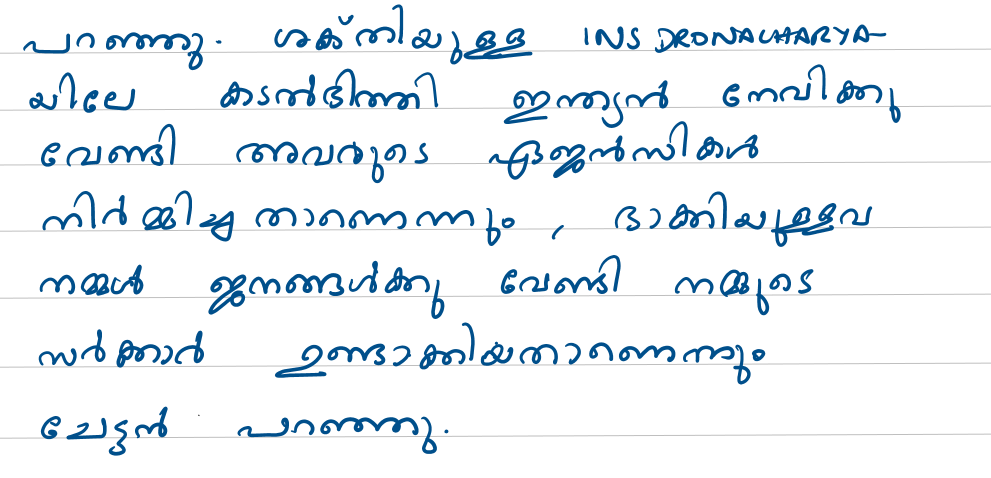 പറഞ്ഞു. ശക്തിയുള്ള INS DRONACHARYA
യിലേ കടൽഭിത്തി ഇന്ത്യൻ നേവിക്കു
വേണ്ടി അവരുടെ ഏജൻസികൾ
നിർമ്മിച്ച താണെന്നും , ഭാക്കിയുള്ളവ
നമ്മൾ ജനങ്ങൾക്കു വേണ്ടി നമ്മുടെ
സർക്കാർ ഉണ്ടാക്കിയതാണെന്നും
ചേട്ടൻ പറഞ്ഞു.